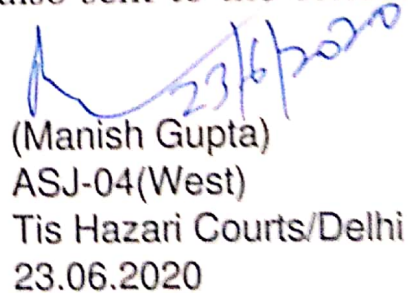 also sent to the
23/6/2020
(Manish Gupta)
ASJ-04(West)
Tis Hazari Courts/Delhi
23.06.2020